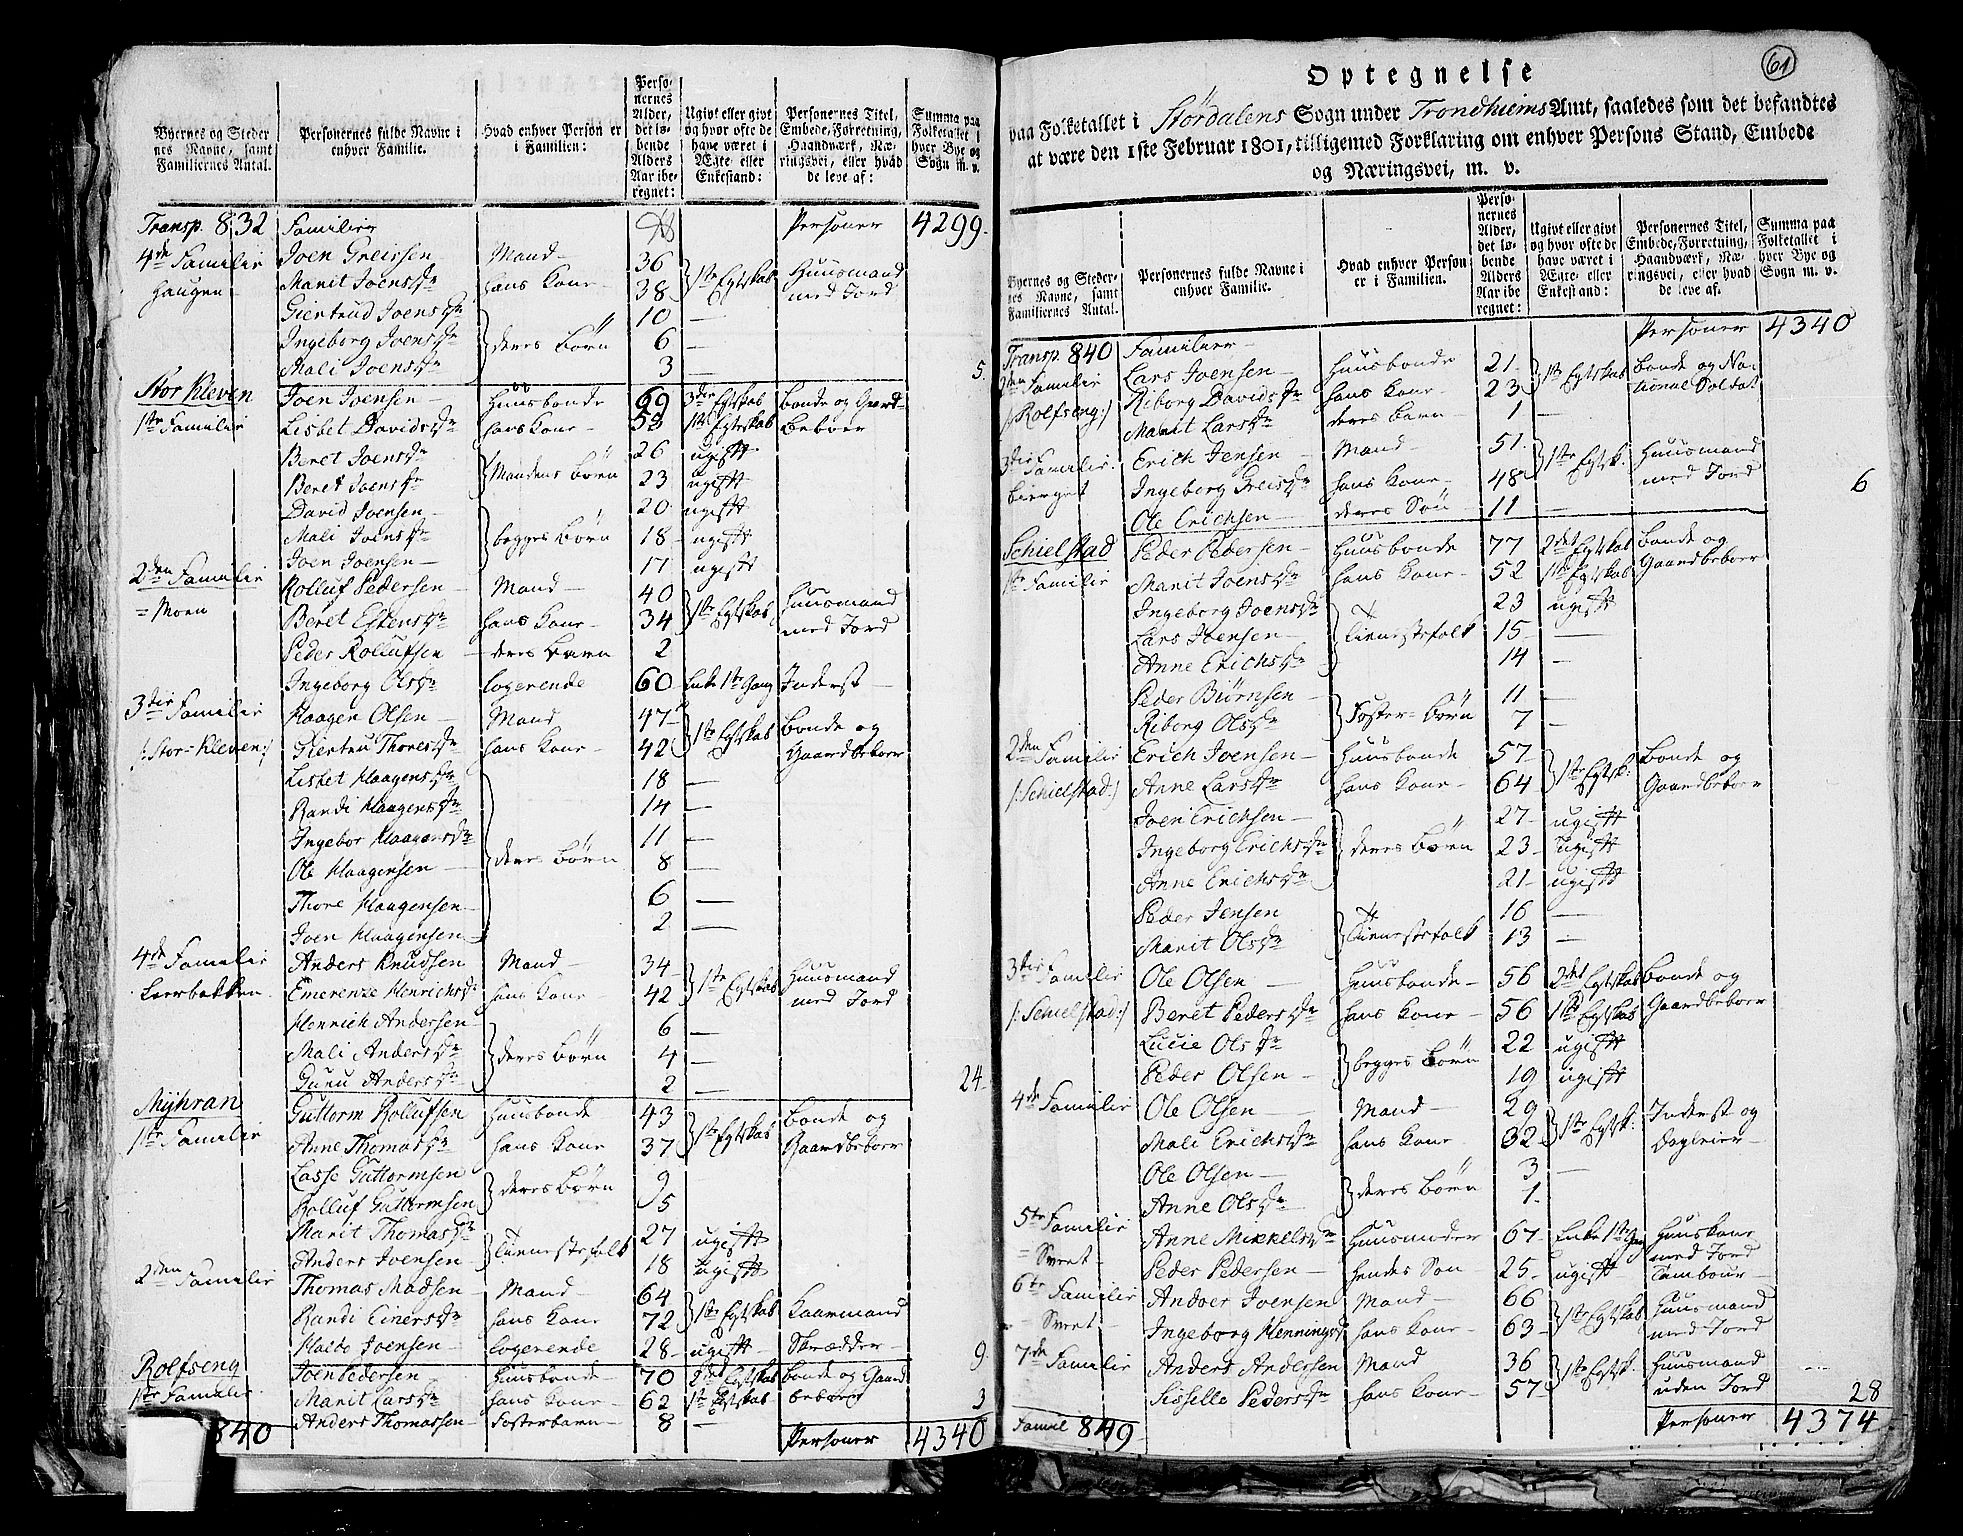 Byernes og Steder
nes Navne, samt
Familiernes Antal.
Personernes fulde Navne i
enhver Familie.
Hvad enhver Person er
i Familien:
Perso-
nernes
Alder,
det lø-
bende
Alders
Aar ibe-
regnet:
Ugivt eller givt
og hvor ofte de
have været i
Ægte- eller
Enkestand:
Personernes Titel,
Embede, Forretning,
Haandværk, Næ-
ringsvei, eller hvad
de leve af:
Summa paa
Folketallet i
hver Bye og
Sogn m. v.
Transp. 832 Familier Personer 4299.
4de Familie Joen Greissen Mand 36 1ste Egtskab Huusmand
Haugen Marit Joensdr hans Kone 38 med Jord
Giertrud Joensdr 10 —
Ingeborg Joensdr deres Börn 6 —
Mali Joensdr 3 — 5.
Stor Kleven Joen Joensen Huusbonde 69 3die Egtskab Bonde og Gaard-
1ste Familie Lisbet Davidsdr hans Kone 53 1ste Egtskab beboer
Beret Joensdr 26 ugift
Beret Joensdr Mandens Börn 23 ugift
David Joensen 20 ugift
Mali Joensdr begges Börn 18 ugift
Joen Joensen 17 ugift
2den Familie Rolluf Pedersen Mand 40 1ste Egtskab Huusmand
= Moen Beret Estensdr hans Kone 34 med Jord
Peder Rollufsen deres Barn 2
Ingeborg Olsdr logerende 60 Enke 1ste Gang Inderst
3die Familie Haagen Olsen Mand 47 1ste Egtskab Bonde og
/: Stor-Kleven :/ Giertru Thoresdr hans Kone 42 Gaardbeboer
Lisbet Haagensdr 18 —
Randi Haagensdr 14 —
Ingebor Haagensdr 11 —
Ole Haagensen deres Börn 8
Thore Haagensen 6 —
Joen Haagensen 2 —
4de Familie Anders Knudsen Mand 34 1ste Egtskab Huusmand
Leerbakken Emerenze Henrichsdr hans Kone 42 med Jord
Henrich Andersen 6 —
Mali Andersdr deres Börn 4 —
Guru Andersdr 2 — 24
Myhran Guttorm Rollufsen Huusbonde 43 1ste Egtskab Bonde og
1ste Familie Anne Thomasdr hans Kone 37 Gaardbeboer
Lasse Guttormsen deres Börn 9
Rolluf Guttormsen 5
Marit Thomasdr Tienestefolk 27 ugift
Anders Ivensen 18 ugift
2den Familie Thomas Madsen Mand 64 1ste Egtskab Kaarmand
Randi Einersdr hans Kone 72
Haldo Joensen logerende 28 ugift Skrædder 9.
Rolfseng Joen Pedersen Huusbonde 70 2det Egtskab Bonde og Gaard
1ste Familie Marit Larsdr hans Kone 62 1ste Egtskab beboer
Anders Thomassen Fosterbarn 8 — 3
840 Personer 4340
61
Optegnelse
paa Folketallet i Stördalens Sogn under Trondhiems Amt, saaledes som det befandtes
at være den 1ste Februar 1801, tilligemed Forklaring om enhver Persons Stand, Embede
og Næringsvei, m. v.
Byernes og Steder-
nes Navne, samt
Familiernes Antal.
Personernes fulde Navne i
enhver Familie.
Hvad enhver Person
er i Familien.
Perso-
nernes
Alder,
det lø-
bende
Alders
Aar ibe-
regnet:
Ugivt eller givt
og hvor ofte de
have været i
Ægte- eller
Enkestand:
Personernes Titel,
Embede, Forretning,
Haandværk, Næ-
ringsvei, eller hvad
de leve af.
Summa paa
Folketallet i
hver Bye og
Sogn m. v.
Transp. 840 Familier Personer 4340
2den Familie Lars Joensen Huusbonde 21 1ste Egtskab Bonde og Na-
/: Rolfseng :/ Riborg Davidsdr hans Kone 23 tional Soldat
Marit Larsdr deres Barn 1 —
3die Familie Erich Jensen Mand 51 1ste Egtsk. Huusmand
Bierget Ingeborg Greisdr hans Kone 48 med Jord
Ole Erichsen deres Sön 11 — 6
Schielstad Peder Pedersen Huusbonde 77 2det Egtskab Bonde og
1ste Familie Marit Joensdr hans Kone 52 1ste Egtskab Gaardbeboer
Ingeborg Joensdr 23 ugift
Lars Joensen Tienestefolk 15 —
Anne Erichsdr 14 —
Peder Biörnsen 11 —
Riborg Olsdr Foster-Börn 7 —
2den Familie Erich Joensen Huusbonde 57 1ste Egtsk: Bonde og
/: Schielstad :/ Anne Larsdr hans Kone 64 Gaardbeboer
Joen Erichsen 27 ugift
Ingeborg Erichsdr deres Börn 23 ugift
Anne Erichsdr 21 ugift
Peder Jensen 16 —
Marit Olsdr Tienestefolk 13 —
3die Familie Ole Olsen Huusbonde 56 2det Egtskab Bonde og
/: Schielstad :/ Beret Pedersdr hans Kone 56 1ste Egtskab Gaardbeboer
Lucie Olsdr 22 ugift
Peder Olsen begges Börn 19 ugift
4de Familie Ole Olsen Mand 29 1ste Egtsk: Inderst og
Mali Erichsdr hans Kone 32 Dagleier
Ole Olsen deres Börn 3 —
Anne Olsdr 1.
5te Familie Anne Mikkelsdr Huusmoder 67 Enke 1ste Gang Huuskone
= Svret med Jord
Peder Pedersen hendes Sön 25 ugift Tambour
6te Familie Andoer Joensen Mand 66 1ste Egtskab Huusmand
Svret Ingeborg Henningsd hans Kone 63 med Jord
7de Familie Anders Andersen Mand 36 1ste Egtsk. Huusmand
Sisselle Pedersdr hans Kone 57 uden Jord 28
Famil 849 Personer 4374